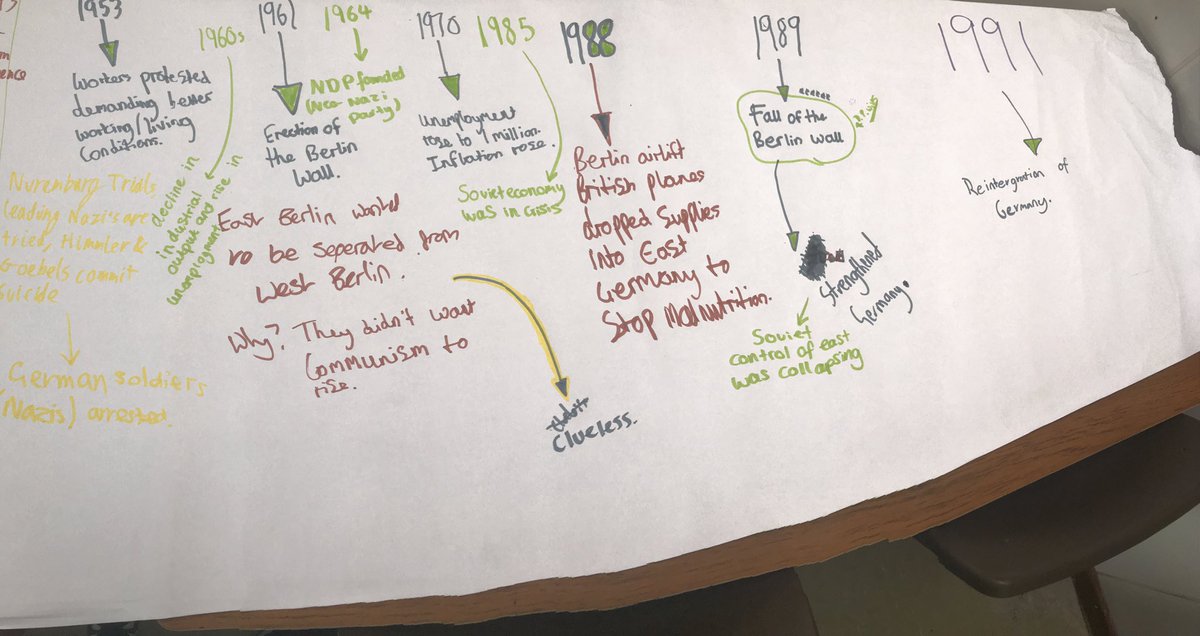 1953
Workers protested
demanding better
working/living
conditions.
Nuremburg Trials,
leading Nazi's are
tried, Himmler &
Goebels commit
suicide
German soldiers
(Nazis) arrested.
1960s
decline in
industrial
output and rise in
unemployment
1961
Erection of
the Berlin
Wall.
East Berlin wanted
to be seperated from
West Berlin.
Why? They didn't want
Communism to
rise.
Clueless.
1964
NDP founded
(Neo-Nazi
party)
1970
Unemployment
rose to 1 million.
Inflation rose.
1985
Soviet economy
was in crisis
1988
Berlin airlift
British planes
dropped supplies
into East
Germany to
Stop Malnutrition.
1989
Fall of the
Berlin wall
Strengthened
Germany.
Soviet
control of east
was collapsing
1991
Reintergration of
Germany.